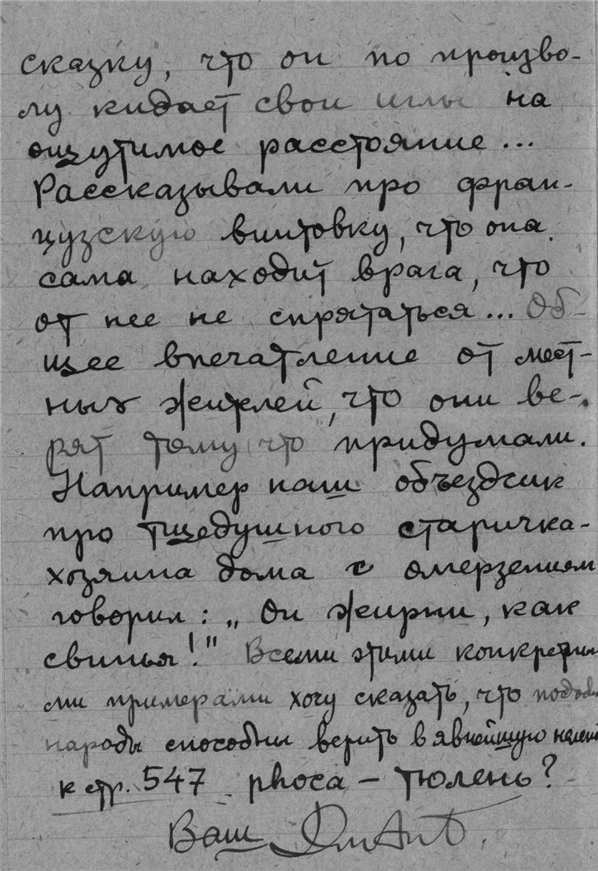 сказку, что он по произво-
лу кидает свои иглы на
ощутимое расстояние...
Рассказывали про фран-
цузскую винтовку, что она
сама находит врага, что
от нее не спрятаться... Об-
щее впечатление от мест-
ных жителей, что они ве-
рят тому что придумали.
Например наш объездчик
про тщедушного старичка-
хозяина дома с омерзением
говорил: „Он жирни, как
свинья!" Всеми этими конкретны-
ми примерами хочу сказать, что
народы способны верить в явнейшую
к стр. 547 phoca – тюлень?
Ваш